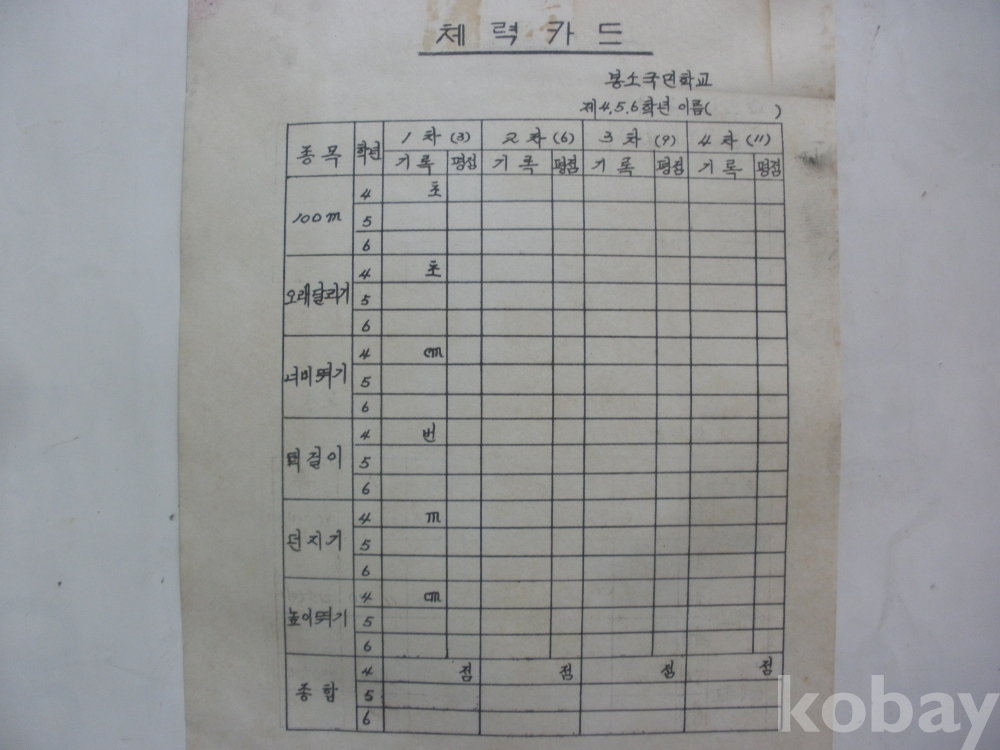 체력카드
봉소국민학교
제4.5.6학년 이름( )
종목 학년 1차(3) 2차(6) 3차(9) 4차(11)
기록 평점 기록 평점 기록 평점 기록 평점
100m 4 초
5
6
오래달리기 4 초
5
6
너비뛰기 4 cm
5
6
턱걸이 4 번
5
6
던지기 4 m
5
6
높이뛰기 4 cm
5
6
종합 4 점 점 점 점
5
6
kobay